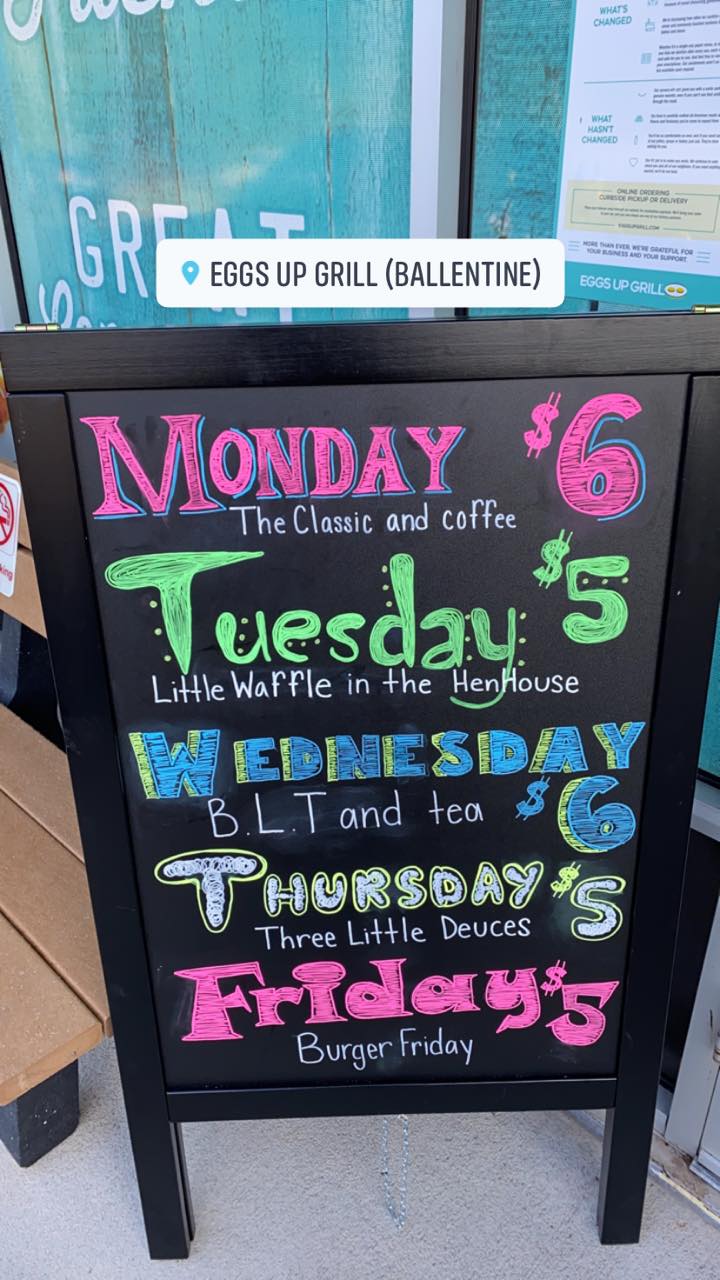 GREAT
EGGS UP GRILL (BALLENTINE)
WHAT'S
CHANGED
WHAT
HASN'T
CHANGED
ONLINE ORDERING
CURBSIDE PICKUP OR DELIVERY
EGGSUPGRILL.COM
MORE THAN EVER, WE'RE GRATEFUL FOR
YOUR BUSINESS AND YOUR SUPPORT.
EGGS UP GRILL
MONDAY $6
The Classic and coffee
Tuesday $5
Little Waffle in the HenHouse
WEDNESDAY
B.L.T and tea $6
THURSDAY $5
Three Little Deuces
Friday $5
Burger Friday